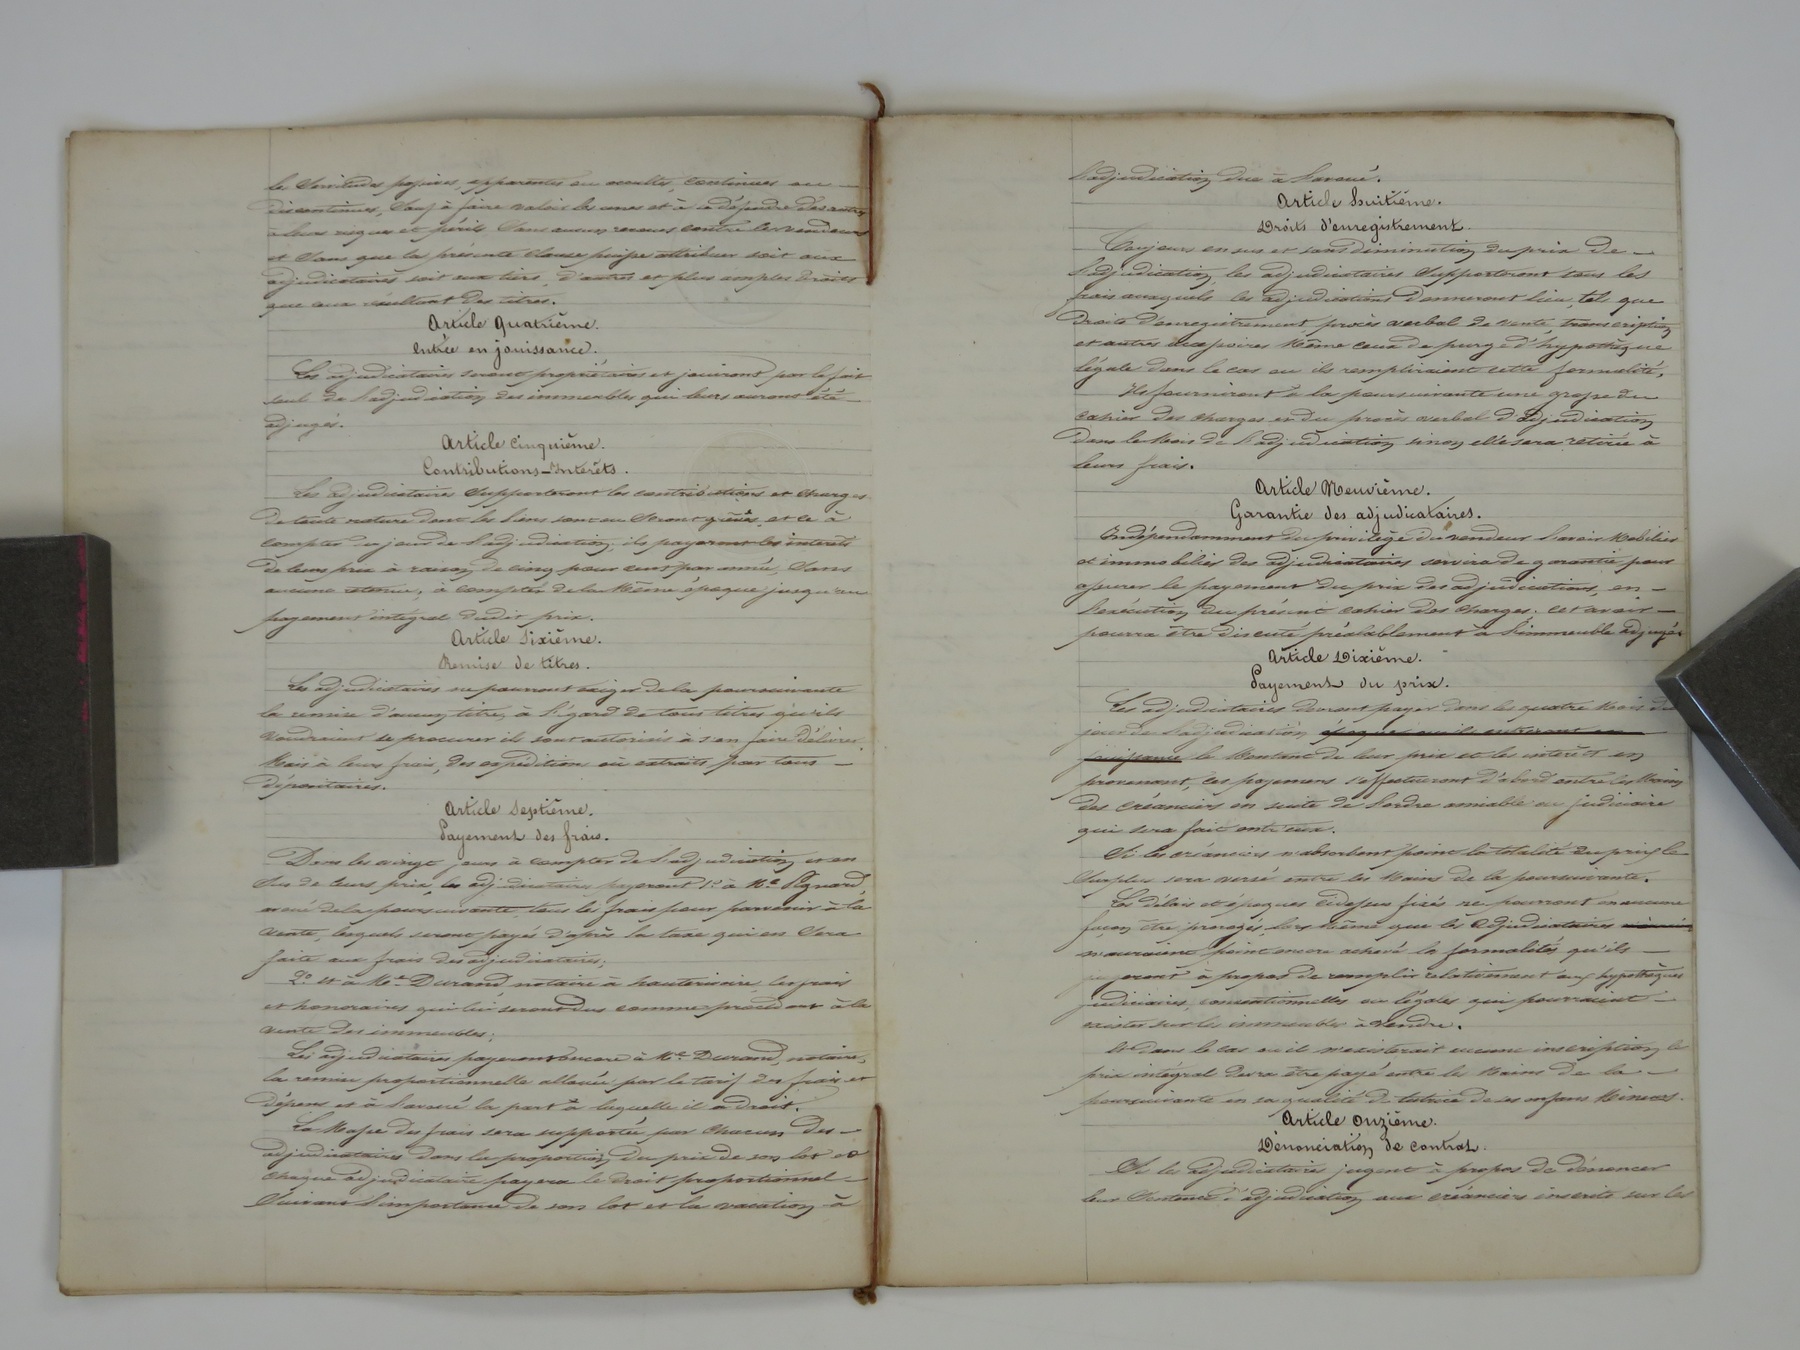 les Servitudes passives, apparentes ou occultes, continues ou —
discontinues, Sauf à faire valoir les unes et à se défendre des autres
à leurs risques et périls, Sans aucun recours contre les vendeurs
et Sans que la présente clause puisse attribuer soit aux
adjudicataires soit aux tiers, d'autres et plus amples droits
que ceux résultant des titres.
Article Quatrième.
entrée en jouissance.
Les adjudicataires seront propriétaires et jouiront par le fait
seul de l'adjudication des immeubles qui leurs auront été —
adjugés.
Article Cinquième.
Contributions _ Intérêts.
Les adjudicataires Supporteront les contributions et charges
de toute nature dont les biens sont ou Seront grévés, et ce à
compter du jour de l'adjudication; ils payeront les intérêts
de leurs prix à raison de cinq pour cent par année, Sans
aucune retenue, à compter de la Même époque jusqu'au
payement intégral dudit prix.
Article Sixième.
Remise de titres.
Les adjudicataires ne pourront exiger de la poursuivante
la remise d'aucun titre, à l'égard de tous titres qu'ils
voudraient se procurer ils sont autorisés à s'en faire délivrer
Mais à leurs frais, des expéditions ou extraits par tous —
dépositaires.
Article Septième.
Payement des frais.
Dans les vingt jours à compter de l'adjudication et en
Sus de leurs prix, les adjudicataires payeront 1.° à Me Pignard,
avoué de la poursuivante, tous les frais pour parvenir à la
vente, lesquels seront payés d'après la taxe qui en Sera
faite aux frais des adjudicataires;
2.° et à Me Durand notaire à hauterivoire, les frais
et honoraires qui lui seront dus comme procédant à la
vente des immeubles;
Les adjudicataires payeront encore à Me Durand, notaire,
la remise proportionnelle allouée par le tarif des frais et
dépens et à l'avoué la part à laquelle il a droit.
La Masse des frais sera supportée par chacun des —
adjudicataires dans la proportion du prix de son lot et
chaque adjudicataire payera le droit proportionnel —
Suivant l'importance de son lot et la vacation à
l'adjudication due à l'avoué.
Article huitième.
Droits d'enregistrement.
Toujours en sus et sans diminution du prix de —
l'adjudication, les adjudicataires Supporteront tous les
frais auxquels les adjudications donneront lieu, tels que
Droits d'enregistrement, procès verbal de vente, transcription
et autres accessoires Même ceux de purge d'hypothèque
légale dans le cas ou ils rempliraient cette formalité,
Ils fourniront à la poursuivante une grosse du
cahier des charges et du procès verbal d'adjudication
dans le Mois de l'adjudication sinon elle sera retirée à
leurs frais.
Article Neuvième.
Garantie des adjudicataires.
Indépendamment du privilège du vendeur l'avoir Mobilier
et immobilier des adjudicataires servira de garantie pour
assurer le payement du prix des adjudications, en —
l'exécution du présent cahier des charges. cet avoir —
pourra être discuté préalablement à l'immeuble adjugé.
Article Dixième.
Payement du prix.
Les adjudicataires devront payer dans les quatre Mois du
jour de l'adjudication époque ou ils entreront en
jouissance le Montant de leur prix et les intérêts en
provenant, ces payemens s'effectueront d'abord entre les Mains
des créanciers en suite de l'ordre amiable ou judiciaire
qui sera fait entr'eux.
Si les créanciers n'absorbent point la totalité du prix le
Surplus sera versé entre les Mains de la poursuivante.
Les délais et époques ci dessus fixés ne pourront en aucune
façon être prorogés, lors Même que les Adjudicataires
n'auraient point encore achevé les formalités qu'ils —
jugeront à propos de remplir relativement aux hypothèques
judiciaires, conventionnelles ou légales qui pourraient —
exister sur les immeubles à vendre.
Et dans le cas ou il n'existerait aucune inscription le
prix intégral devra être payé entre les Mains de la —
poursuivante en sa qualité de tutrice de ses enfans Mineurs.
Article Onzième.
Dénonciation de contrat.
Si les adjudicataires jugent à propos de dénoncer
leur Sentence d'adjudication aux créanciers inscrits sur les